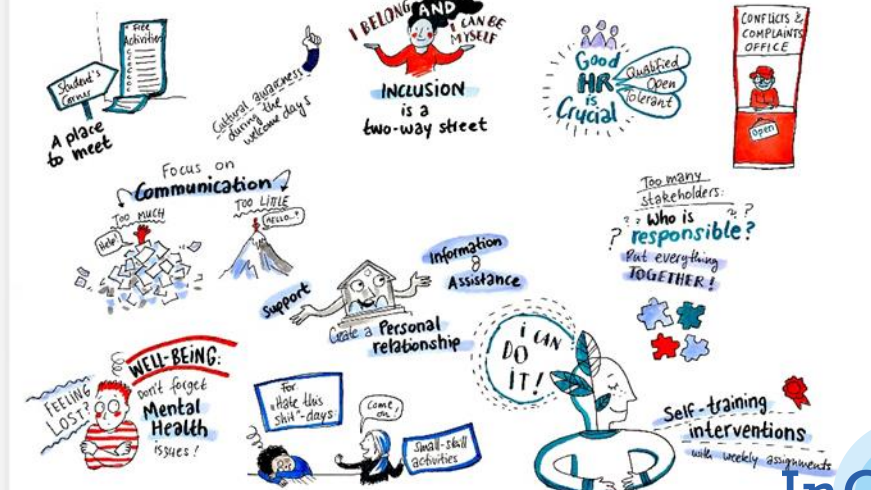 Student's
Corner
Free
Activities
A place
to meet
Cultural awareness
during the
welcome days
I BELONG AND I CAN BE
MYSELF
INCLUSION
is a
two-way street
Good
HR
is
Crucial
Qualified
Open
Tolerant
CONFLICTS &
COMPLAINTS
OFFICE
Open
Focus on
Communication
TOO MUCH
Help!
TOO LITTLE
HELLO..?
Support
Information
&
Assistance
Create a Personal
relationship
Too many
stakeholders:
? ? Who is ? ?
? responsible?
Put everything
TOGETHER!
FEELING
LOST?
WELL-BEING:
Don't forget
Mental
Health
issues!
For
"Hate this
shit"-days:
Come
on!
Small-skill
activities
i CAN
DO
IT!
Self-training
interventions
with weekly assignments